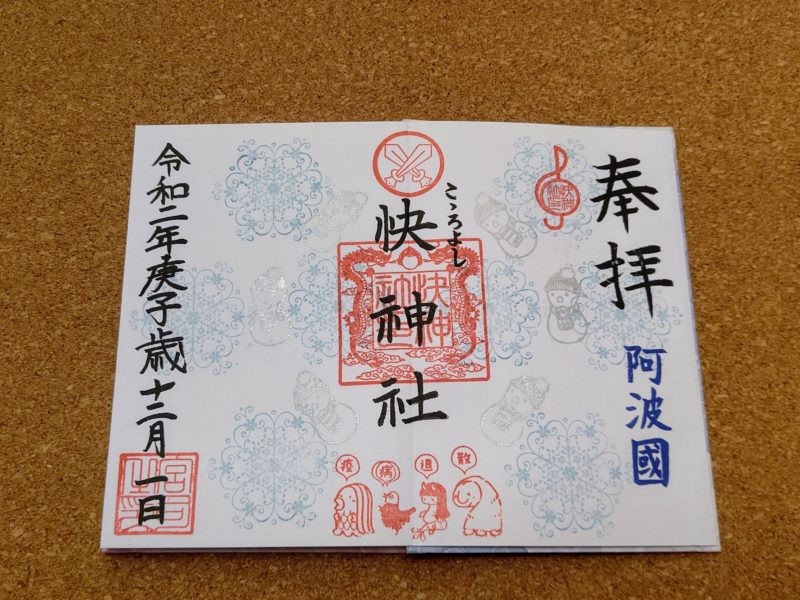 奉拝
阿波國
快神社
こゝろよし
快神社
令和二年庚子歳十二月一日
疫
病
退
散